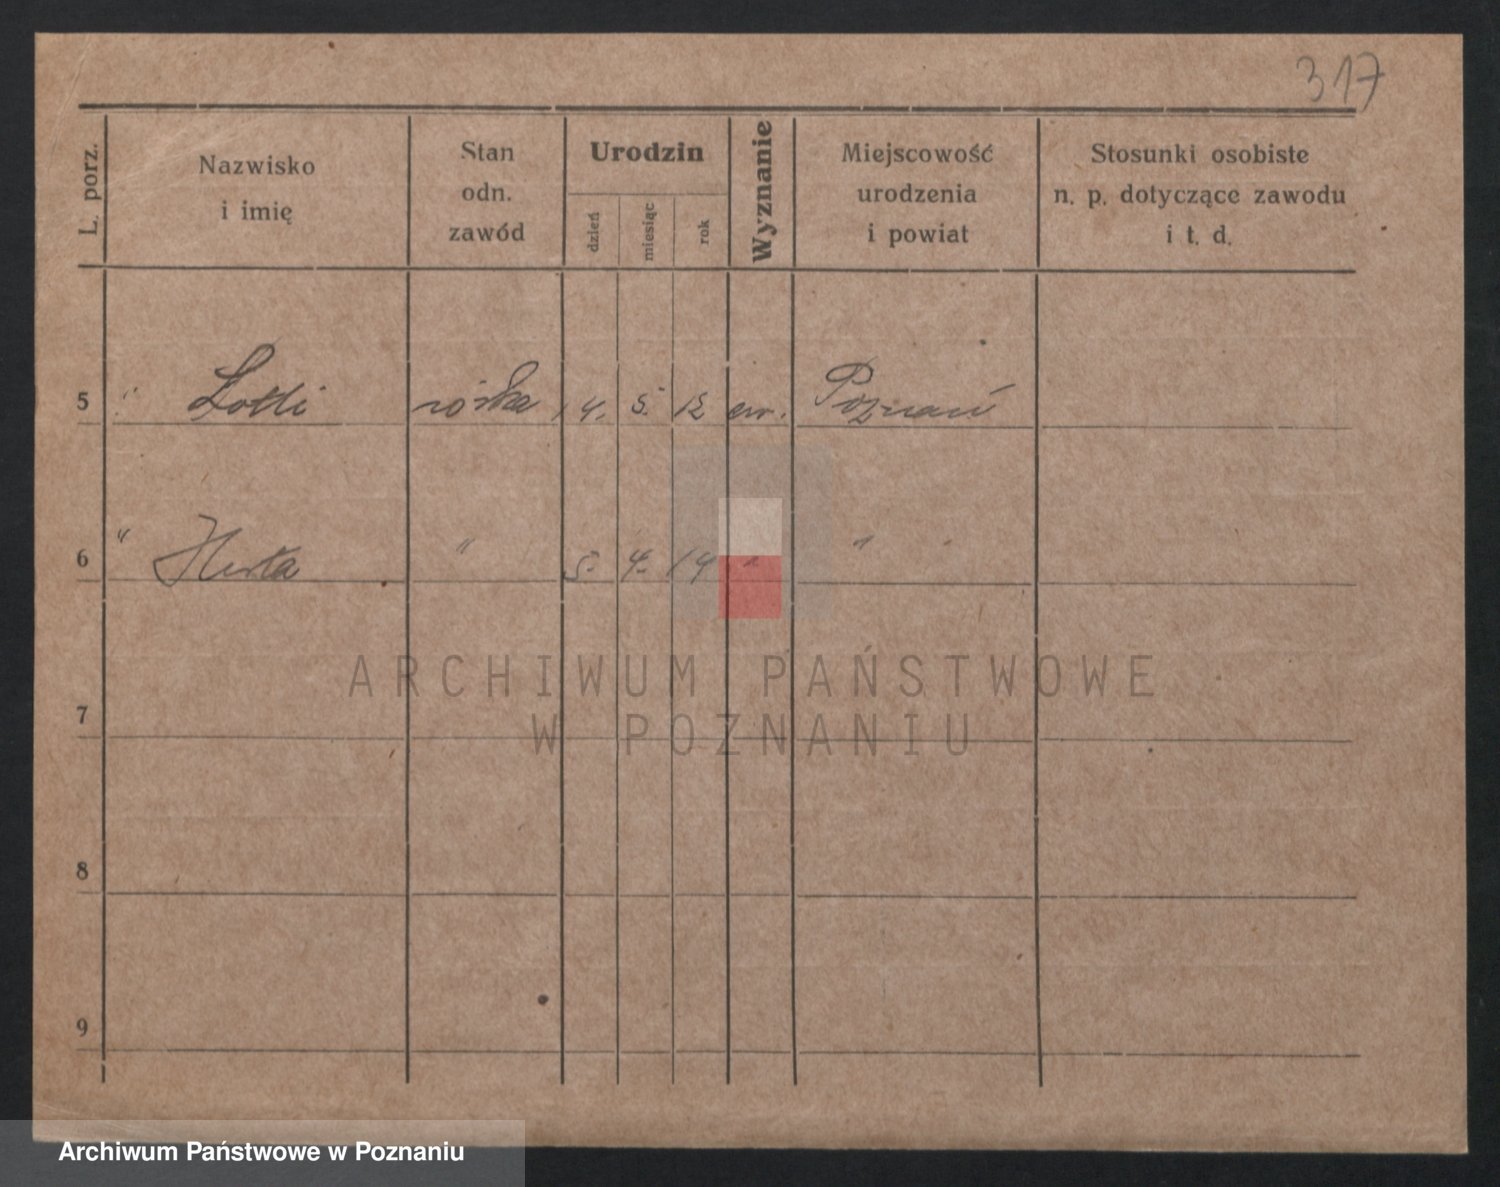 317
L. porz.
Nazwisko
i imię
Stan
odn.
zawód
Urodzin
dzień
miesiąc
rok
Wyznanie
Miejscowość
urodzenia
i powiat
Stosunki osobiste
n. p. dotyczące zawodu
i t. d.
5 " Lotti córka 14. 5. 12 ew. Poznań
6 " Herta " 5. 4. 14 " "
7
8
9
ARCHIWUM PAŃSTWOWE
W POZNANIU
Archiwum Państwowe w Poznaniu